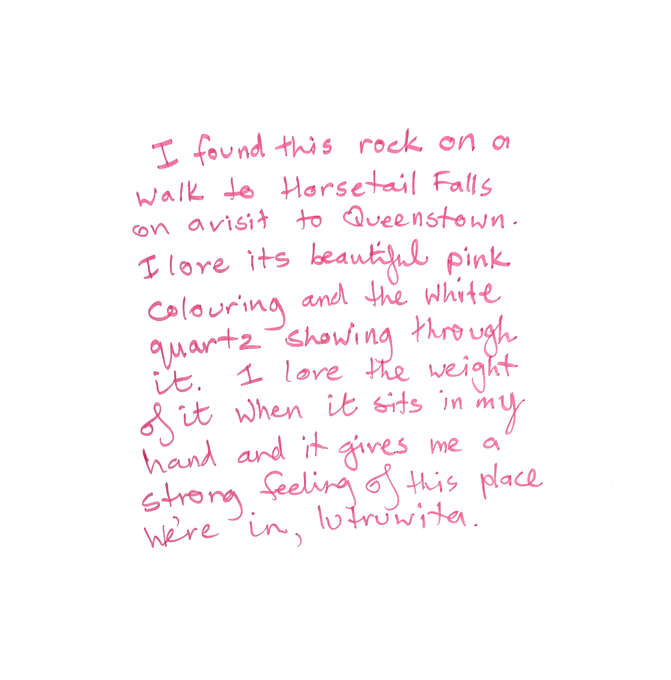 I found this rock on a
walk to Horsetail Falls
on a visit to Queenstown.
I love its beautiful pink
colouring and the white
quartz showing through
it. I love the weight
of it when it sits in my
hand and it gives me a
strong feeling of this place
we're in, lutruwita.